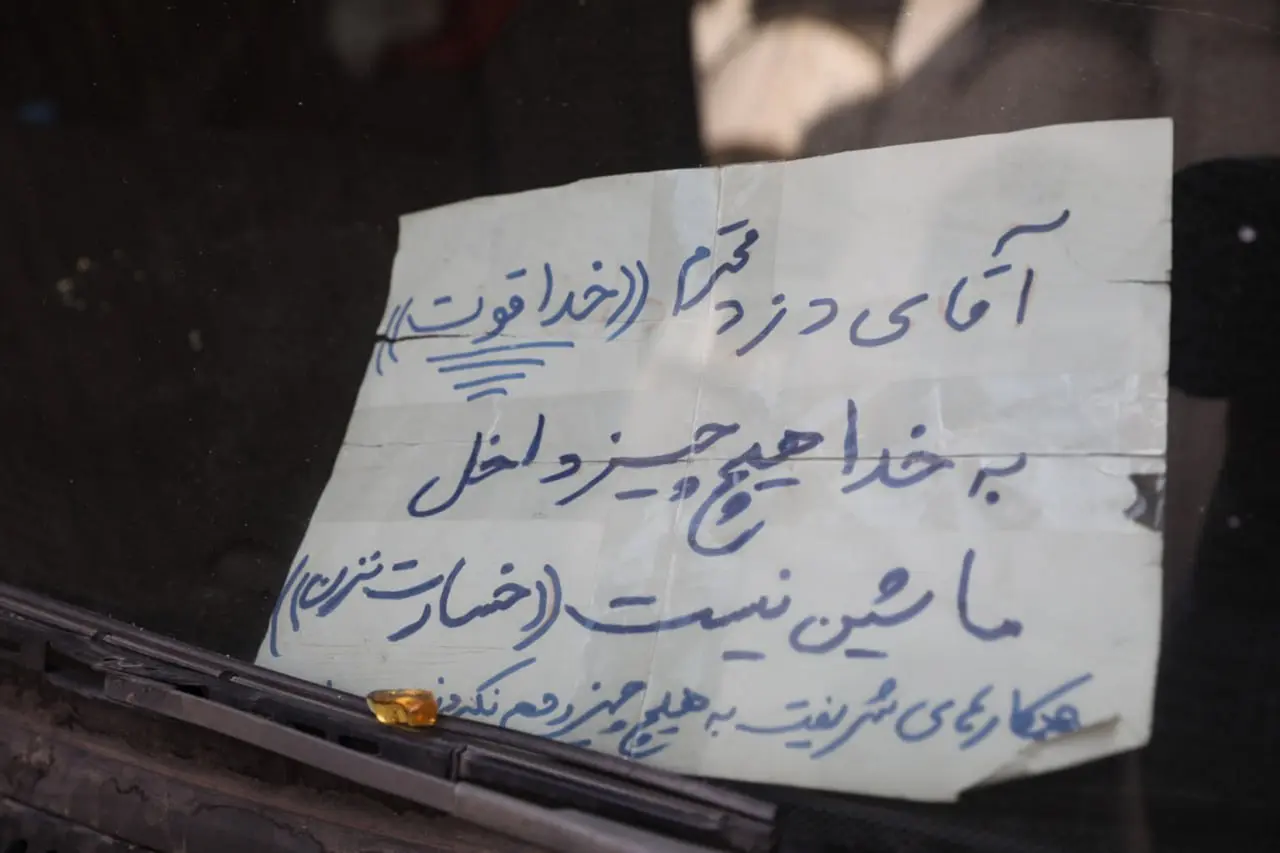 آقای دزد محترم ((خدا قوت))
به خدا هیچ چیز داخل
ماشین نیست ((خسارت نزن))
همکارهای شریفت به هیچ چیز رحم نکردن